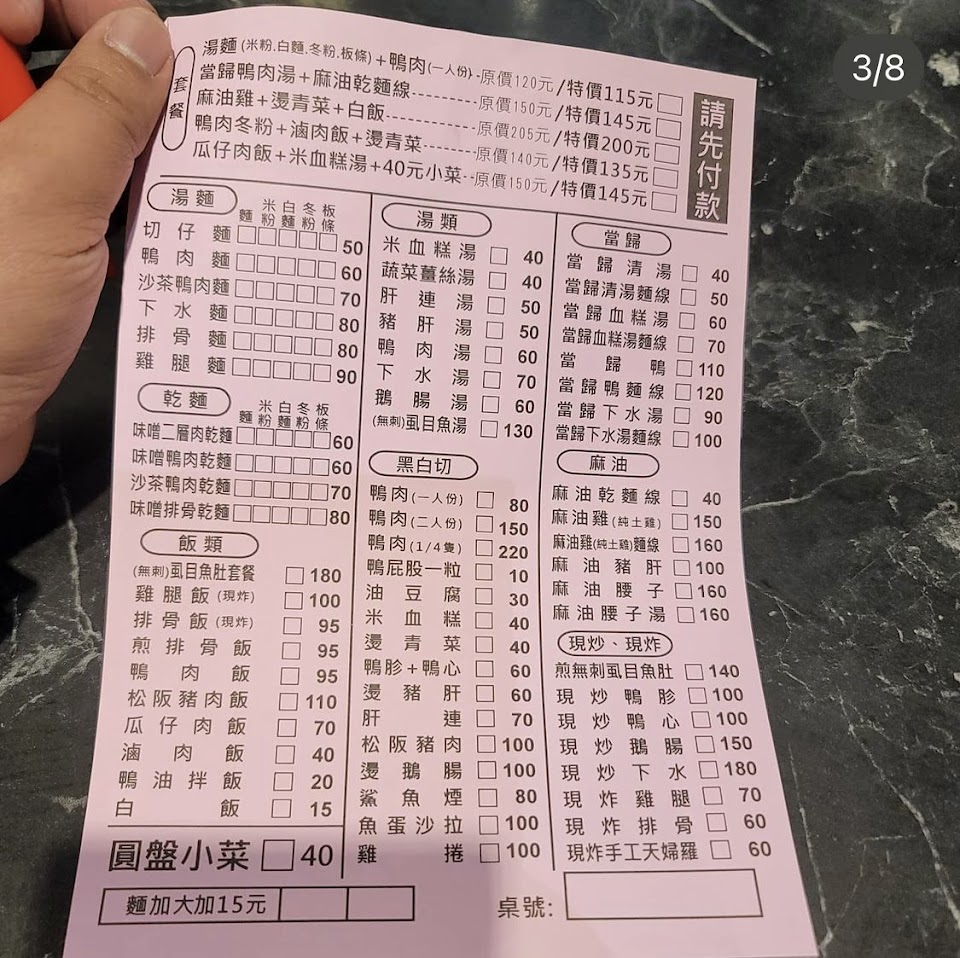 3/8
請先付款
套餐
湯麵(米粉.白麵.冬粉.板條)+鴨肉(一人份)--原價120元/特價115元
當歸鴨肉湯+麻油乾麵線--------原價150元/特價145元
麻油雞+燙青菜+白飯-----------原價205元/特價200元
鴨肉冬粉+滷肉飯+燙青菜-------原價140元/特價135元
瓜仔肉飯+米血糕湯+40元小菜--原價150元/特價145元
湯麵
麵 米粉 白麵 冬粉 板條
切仔麵 50
鴨肉麵 60
沙茶鴨肉麵 70
下水麵 80
排骨麵 80
雞腿麵 90
乾麵
麵 米粉 白麵 冬粉 板條
味噌二層肉乾麵 60
味噌鴨肉乾麵 60
沙茶鴨肉乾麵 70
味噌排骨乾麵 80
飯類
(無刺)虱目魚肚套餐 180
雞腿飯(現炸) 100
排骨飯(現炸) 95
煎排骨飯 95
鴨肉飯 95
松阪豬肉飯 110
瓜仔肉飯 70
滷肉飯 40
鴨油拌飯 20
白飯 15
圓盤小菜 40
麵加大加15元
湯類
米血糕湯 40
蔬菜薑絲湯 40
肝連湯 50
豬肝湯 50
鴨肉湯 60
下水湯 70
鵝腸湯 60
(無刺)虱目魚湯 130
黑白切
鴨肉(一人份) 80
鴨肉(二人份) 150
鴨肉(1/4隻) 220
鴨屁股一粒 10
油豆腐 30
米血糕 40
燙青菜 40
鴨胗+鴨心 60
燙豬肝 60
肝連 70
松阪豬肉 100
燙鵝腸 100
鯊魚煙 80
魚蛋沙拉 100
雞捲 100
當歸
當歸清湯 40
當歸清湯麵線 50
當歸血糕湯 60
當歸血糕湯麵線 70
當歸鴨 110
當歸鴨麵線 120
當歸下水湯 90
當歸下水湯麵線 100
麻油
麻油乾麵線 40
麻油雞(純土雞) 150
麻油雞(純土雞)麵線 160
麻油豬肝 100
麻油腰子 160
麻油腰子湯 160
現炒、現炸
煎無刺虱目魚肚 140
現炒鴨胗 100
現炒鴨心 100
現炒鵝腸 150
現炒下水 180
現炸雞腿 70
現炸排骨 60
現炸手工天婦羅 60
桌號: